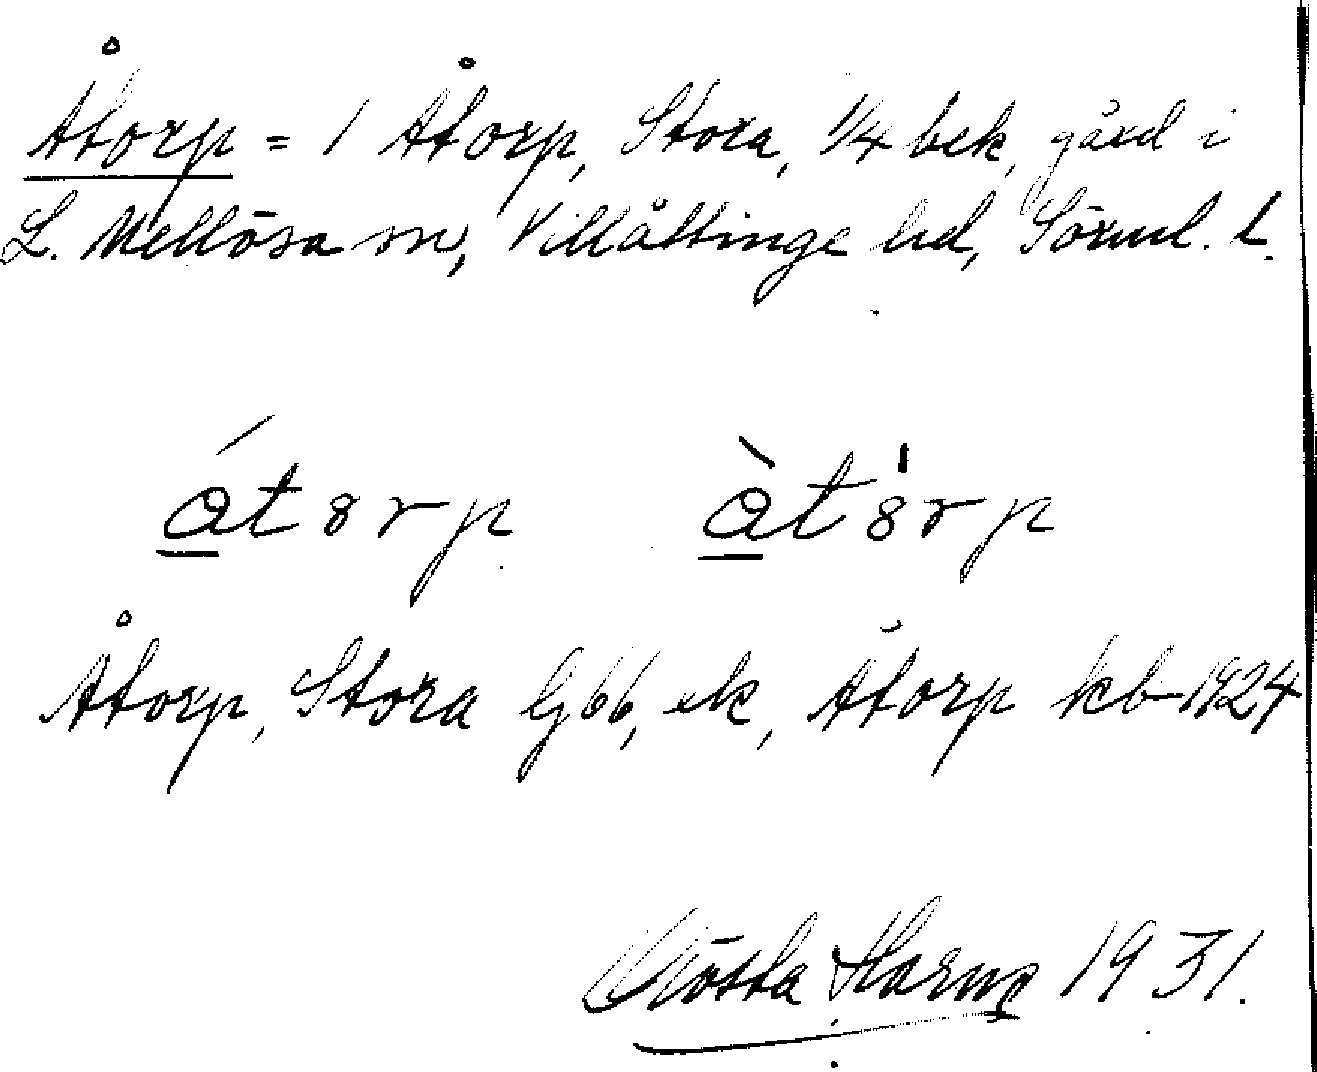 Åtorp = 1 Åtorp, Stora, 1/4 bek, gård i
L. Mellösa sn, Villåttinge hd, Sörml. l.
átorp àtòrp
Åtorp, Stora G66, ek, Åtorp kb 1924
Gösta 1931.